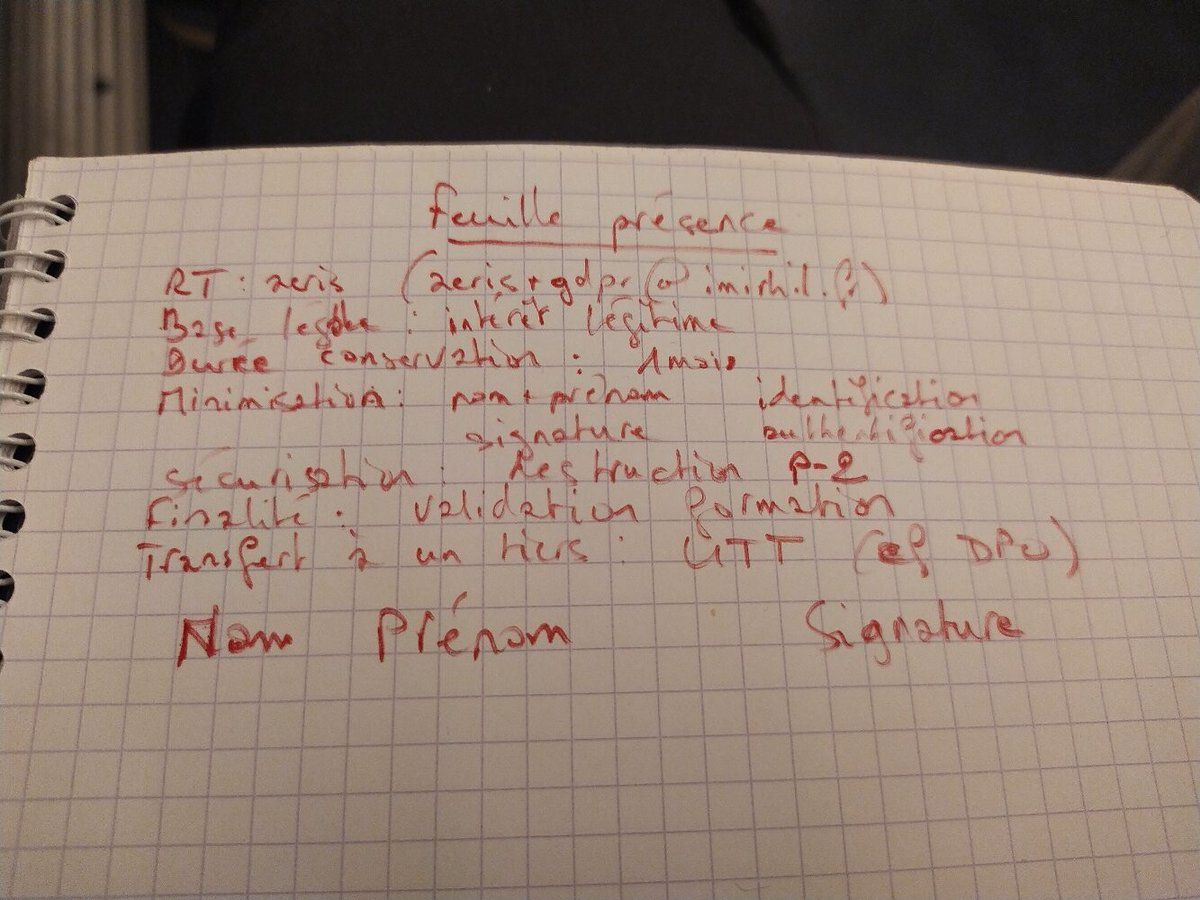 feuille présence
RT : aeris (aeris+gdpr@imirhil.fr)
Base légale : intérêt légitime
Durée conservation : 1 mois
Minimisation : nom + prénom identification
signature authentification
Sécurisation : destruction P-2
Finalité : validation formation
Transfert à un tiers : UTT (cf DPO)
Nom Prénom Signature